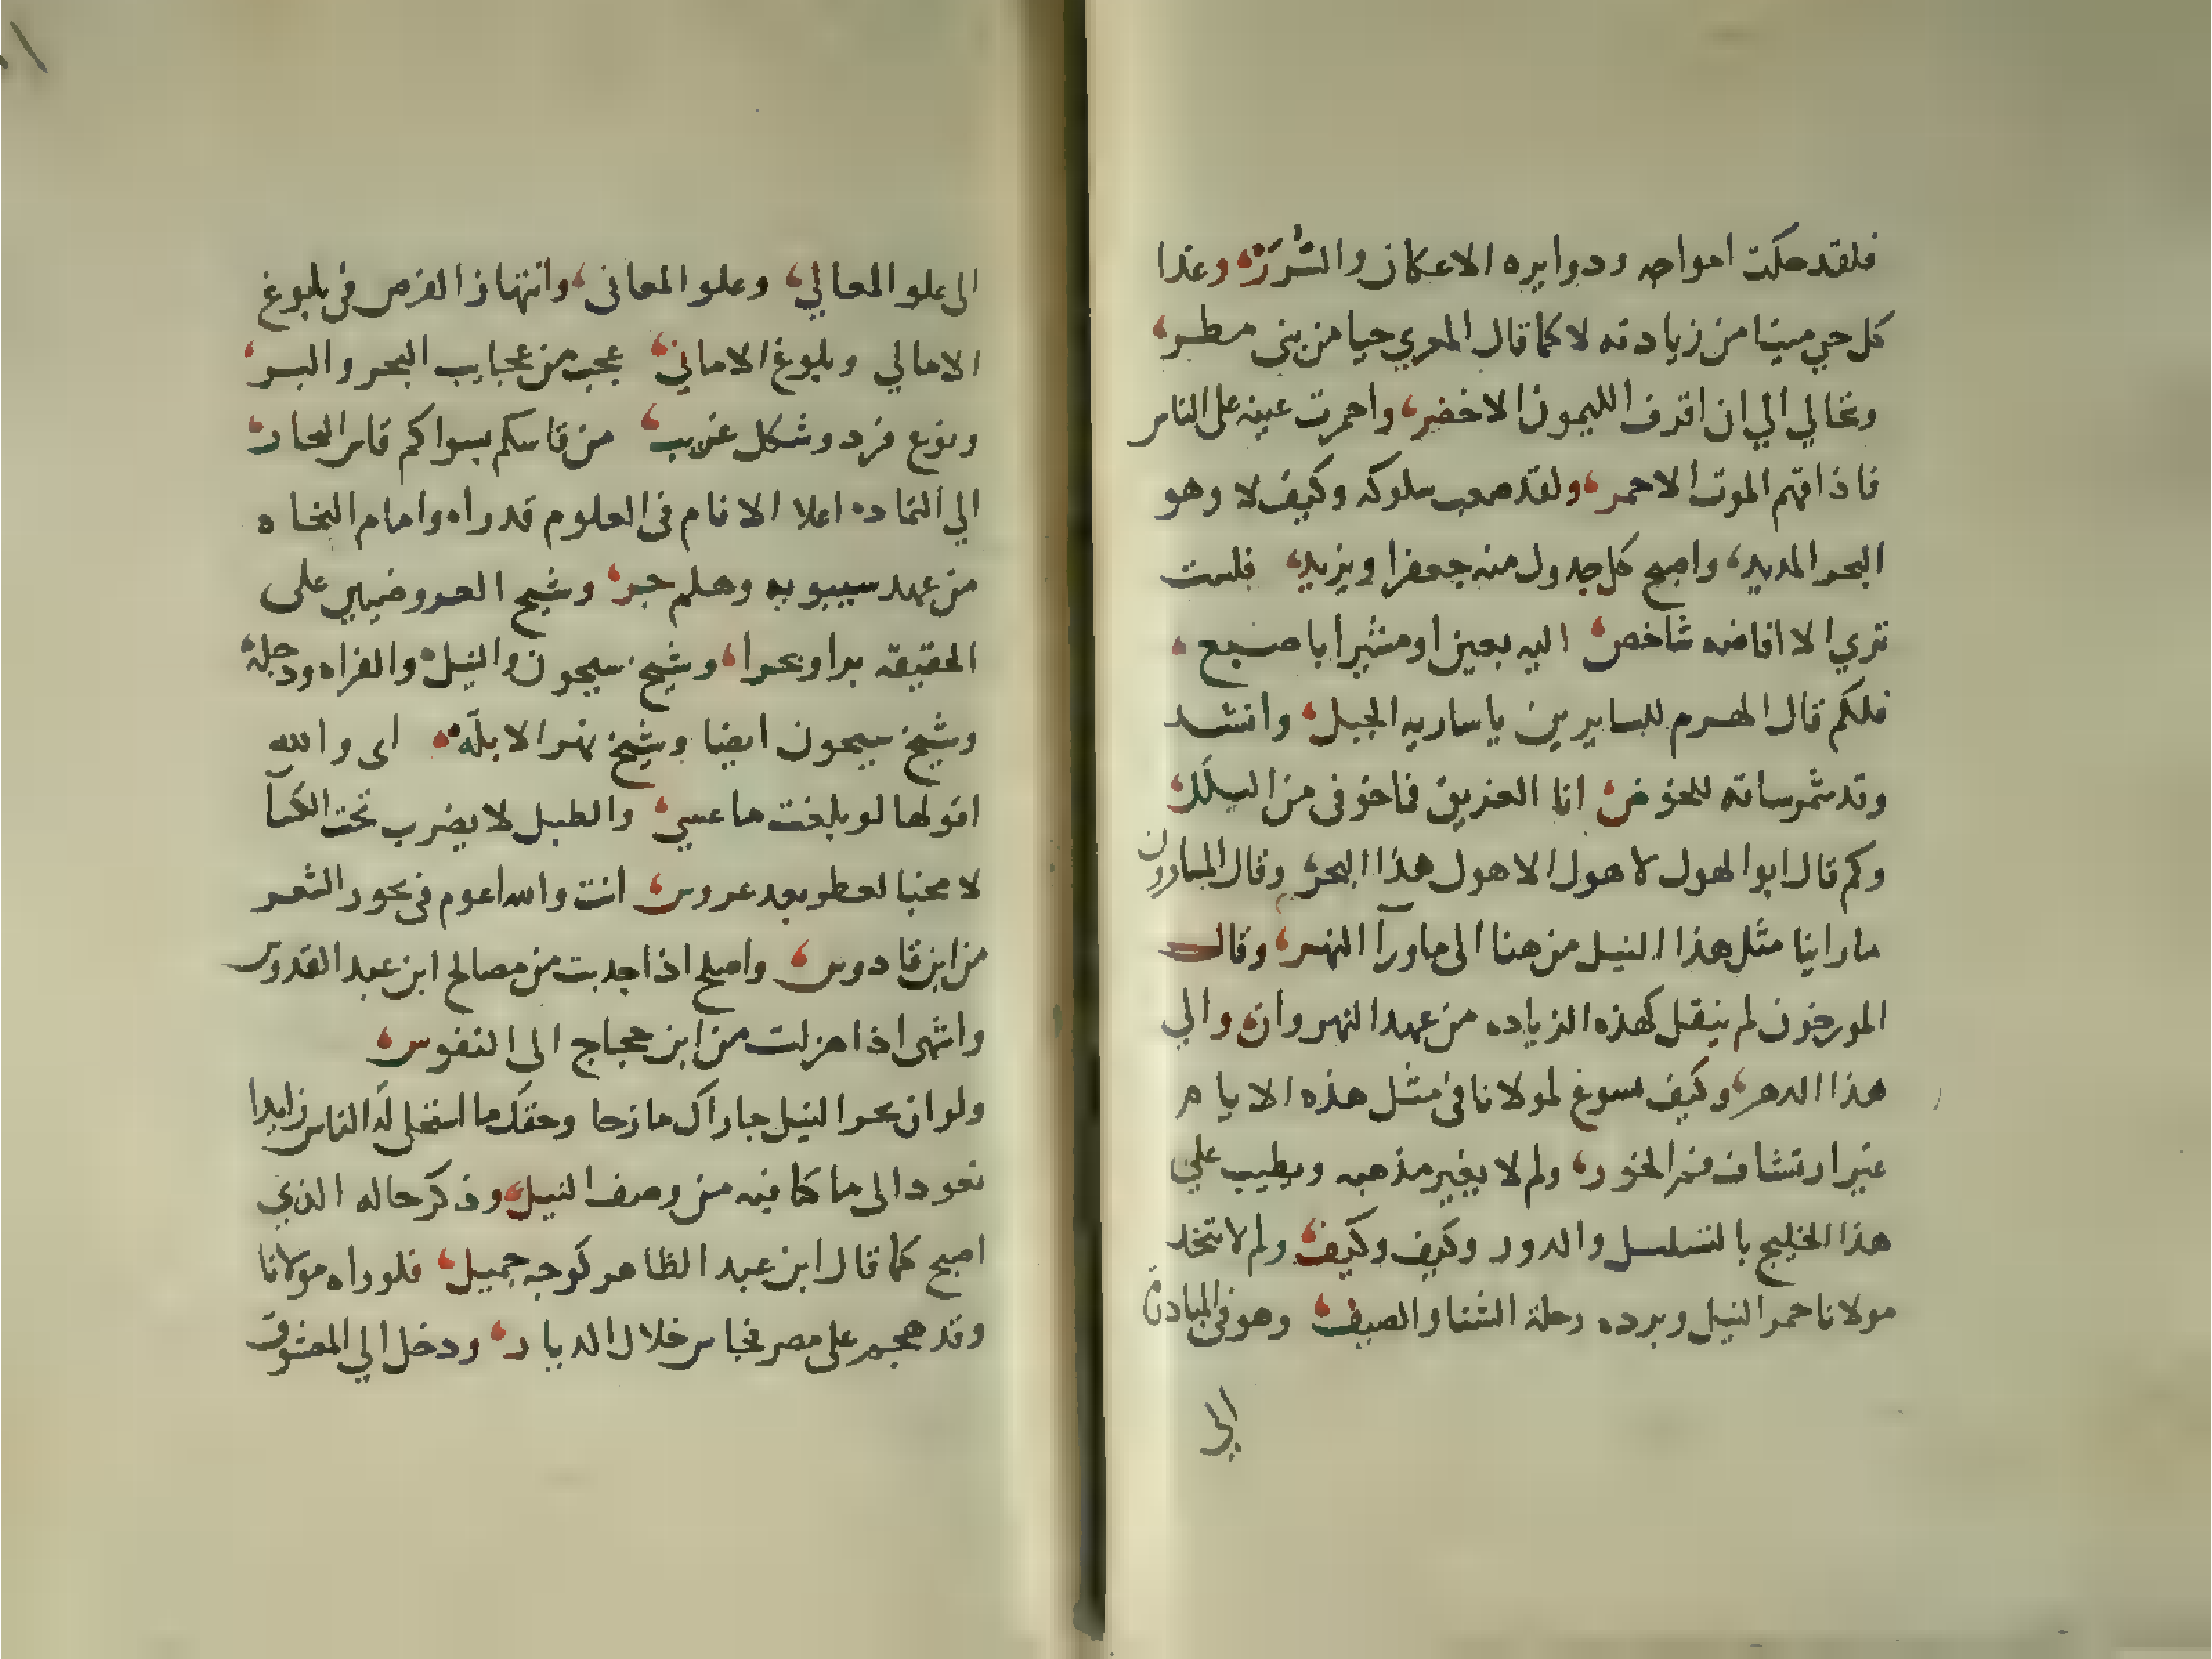 فلقد حكت امواجه ودوايره الاعكان والسُّرَرْ، وغدا
كل حي ميتا من زيادته لا كما قال المعري حيا من بني مطر،
وتحالي الي ان اقرف الليمون الاخضر، واحمرت عينه على الناس
فاذاقهم الموت الاحمر، ولقد صعب سلوكه وكيف لا وهو
البحر المديد، واصبح كل جدول منه جعفرا ويزيد، فلست
تري الا افاضه شاخص، اليه بعين او مشيرا باصبع،
فلكم قال الهرم للسايرين يا ساريه الجبل، وانشد
وقد شمر ساقه للخوض، انا الغريق فما خوفي من البلل،
وكم قال ابو الهول لا هول الا هول هذا البحر، وقال المسافرون
ما راينا مثل هذا النيل من هنا الى ما ورآ النهر، وقال
المورخون لم ينقل كهذه الزياده من عهد النهروان، والي
هذا الدهر، وكيف يسوغ لمولانا في مثل هذه الايام
غير ارتشاف فم الخور، ولم لا يغير مذهبه ويطيب علي
هذا الخليج بالتسلسل والدور وكيف وكيف، ولم لا تتخذ
مولانا حمر النيل وبرده رحلة الشتا والصيف، وهو في المبادرة
الي
الى علو المعالي، وعلو المعاني، وانتهاز الفرص في بلوغ
الامالي وبلوغ الاماني، عجب من عجايب البحر والبر،
ونوع فرد وشكل غريب، من قاسكم بسواكم قاس البحار،
الي الثماده اعلا الانام في العلوم قدراه وامام النحاه
من عهد سيبويه وهلم جر، وشيخ العروضيين على
الحقيقه برا وبحرا، وشيخ سيحون والنيل، والفراه ودجلة،
وشيخ سيحون ايضا وشيخ نهر الابلّه، اى والله
اقولها لو بلغت ما عسي، والطبل لا يضرب تحت الكسآ
لا مخبا لعطر بعد عروس، انت والله اعوم في بحور الشعر
من ابن قادوس، واصلح اذا جدبت من مصالح ابن عبد القدوس
واشهى اذا هزلت من ابن حجاج الى النفوس،
ولو ان بحر النيل جاراك مازحا وحقك ما استحلى له الناس زايدا
نعود الى ما كنا فيه من وصف النيل، وذكر حاله الذي
اصبح كما قال ابن عبد الظاهر كوجه جميل، فلو راه مولانا
وقد هجم على مصر فجاس خلال الديار، ودخل الي المعشوق